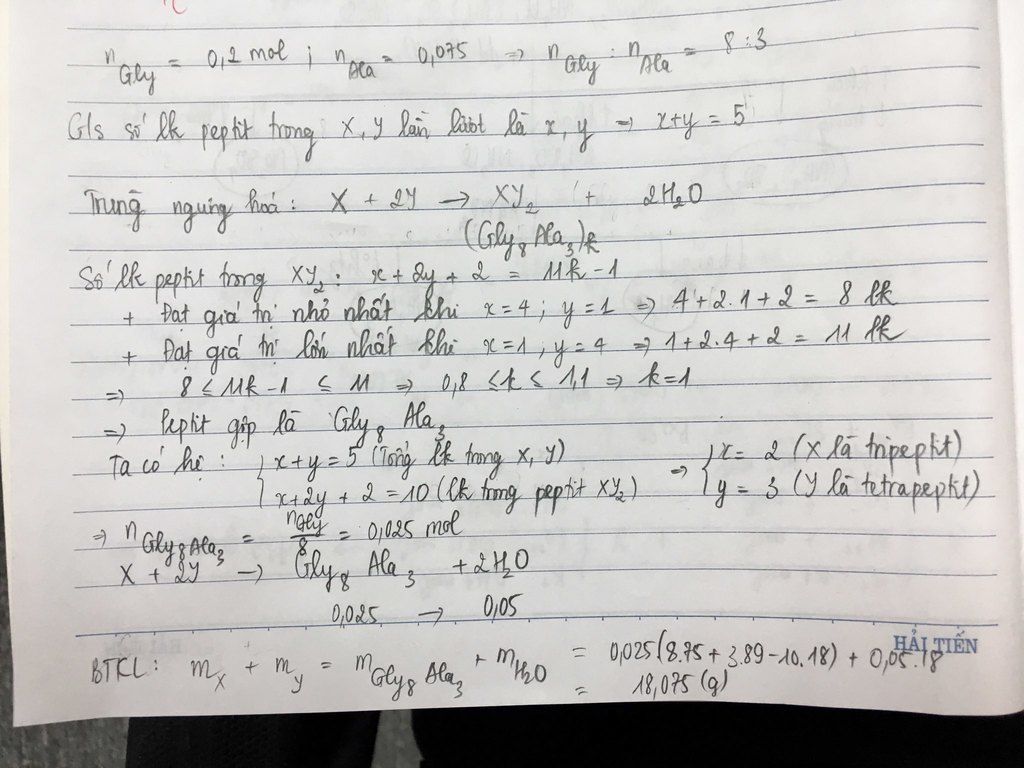 n_Gly = 0,2 mol ; n_Ala = 0,075 ⇒ n_Gly : n_Ala = 8:3
G/s số lk peptit trong X, Y lần lượt là x, y ⇒ x+y = 5
Trùng ngưng hoá: X + 2Y → XY₂ + 2H₂O
(Gly₈ Ala₃)k
Số lk peptit trong XY₂: x + 2y + 2 = 11k - 1
+ Đạt giá trị nhỏ nhất khi x=4; y=1 ⇒ 4+2.1+2 = 8 lk
+ Đạt giá trị lớn nhất khi x=1, y=4 ⇒ 1+2.4+2 = 11 lk
⇒ 8 ≤ 11k-1 ≤ 11 ⇒ 0,8 ≤ k ≤ 1,1 ⇒ k=1
⇒ Peptit gộp là Gly₈ Ala₃
Ta có hệ: { x+y = 5 (Tổng lk trong X, Y) ⇒ { x = 2 (X là tripeptit)
x+2y+2 = 10 (lk trong peptit XY₂) y = 3 (Y là tetrapeptit)
⇒ n_Gly₈Ala₃ = n_Gly/8 = 0,025 mol
X + 2Y → Gly₈ Ala₃ + 2H₂O
0,025 → 0,05
HẢI TIẾN
BTKL: m_X + m_Y = m_Gly₈Ala₃ + m_H₂O = 0,025(8.75 + 3.89-10.18) + 0,05.18
= 18,075 (g)